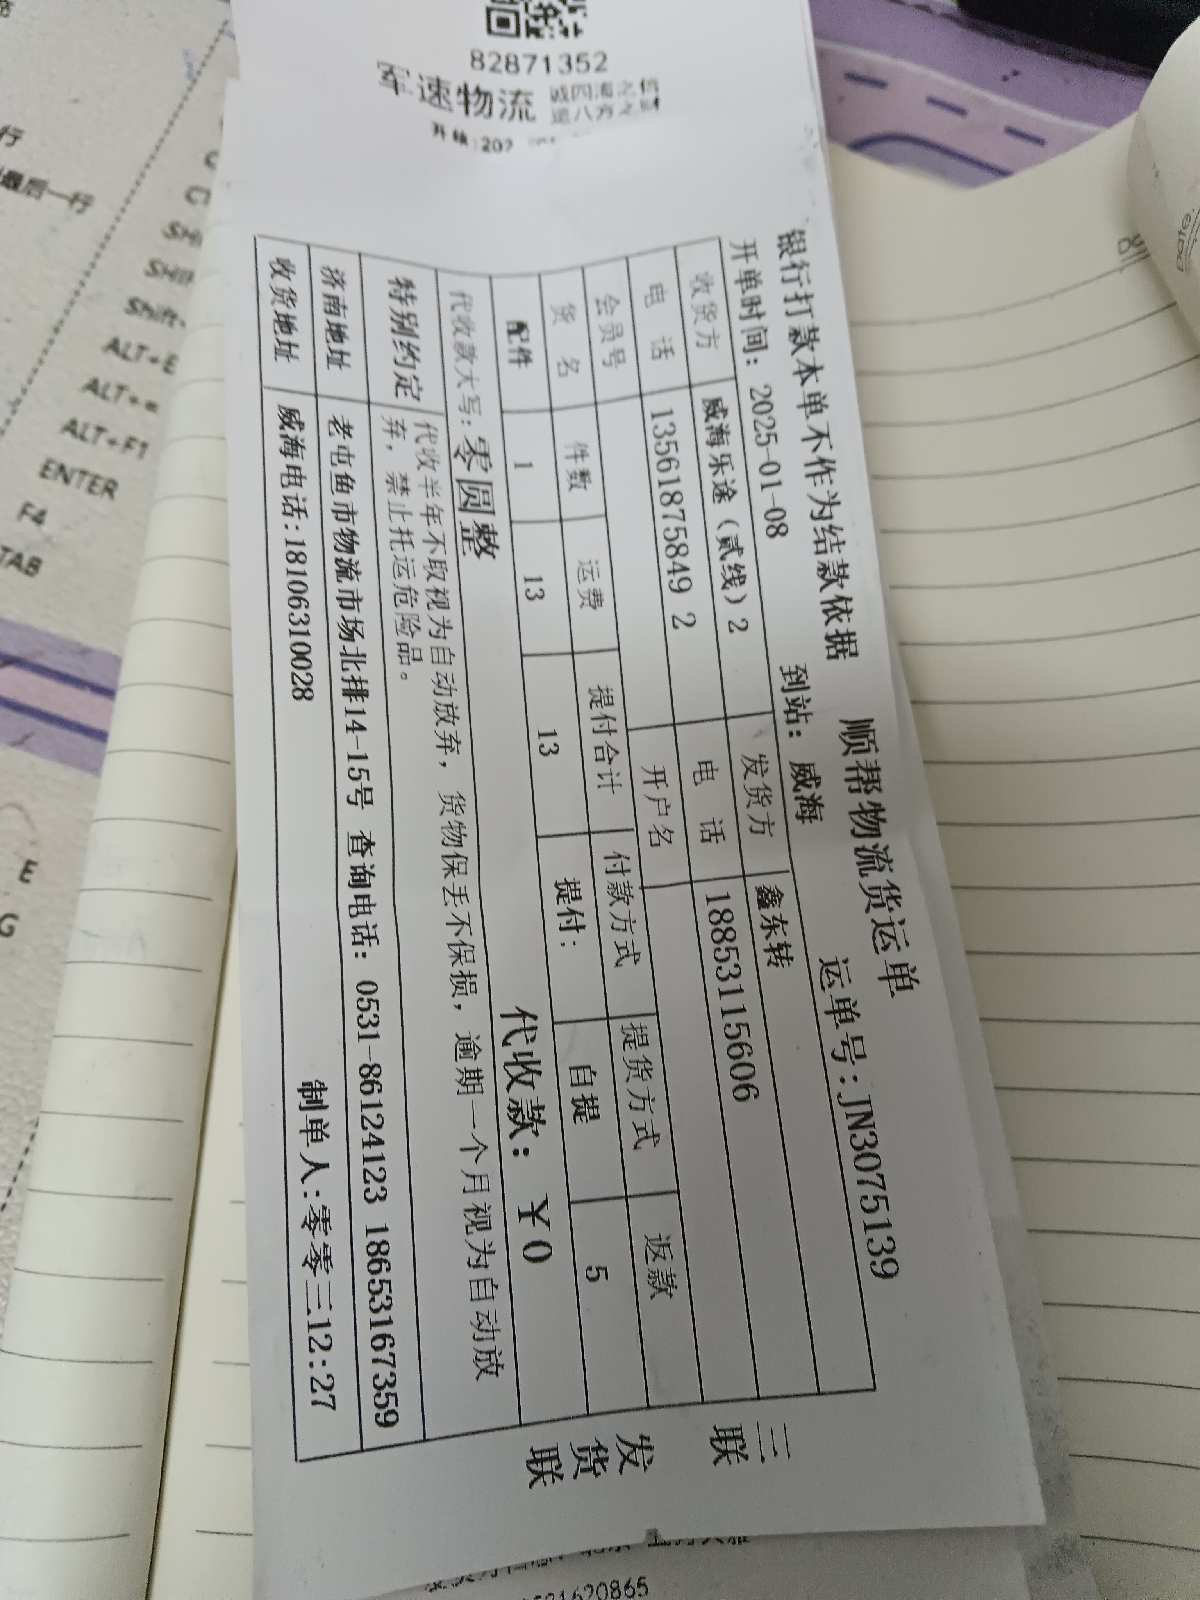 82871352
军速物流 诚四海之信
运八方之财
顺帮物流货运单
银行打款本单不作为结款依据
运单号:JN3075139
开单时间: 2025-01-08 到站: 威海
收货方 威海乐途(贰线)2 发货方 鑫东转
电 话 13561875849 2 电 话 18853115606
会员号 开户名
货 名 件数 运费 提付合计 付款方式 提货方式 返款
配件 1 13 13 提付: 自提 5
代收款大写: 零圆整 代收款: ¥0
特别约定 代收半年不取视为自动放弃, 货物保丢不保损, 逾期一个月视为自动放
弃, 禁止托运危险品。
济南地址 老屯鱼市物流市场北排14-15号 查询电话: 0531-86124123 18653167359
收货地址 威海电话:18106310028 制单人:零零三12:27
三联
发货联
行
最后一行
SHIF
Shift-
ALT+E
ALT+=
ALT+F1
ENTER
F4
TAB
E
G
Date